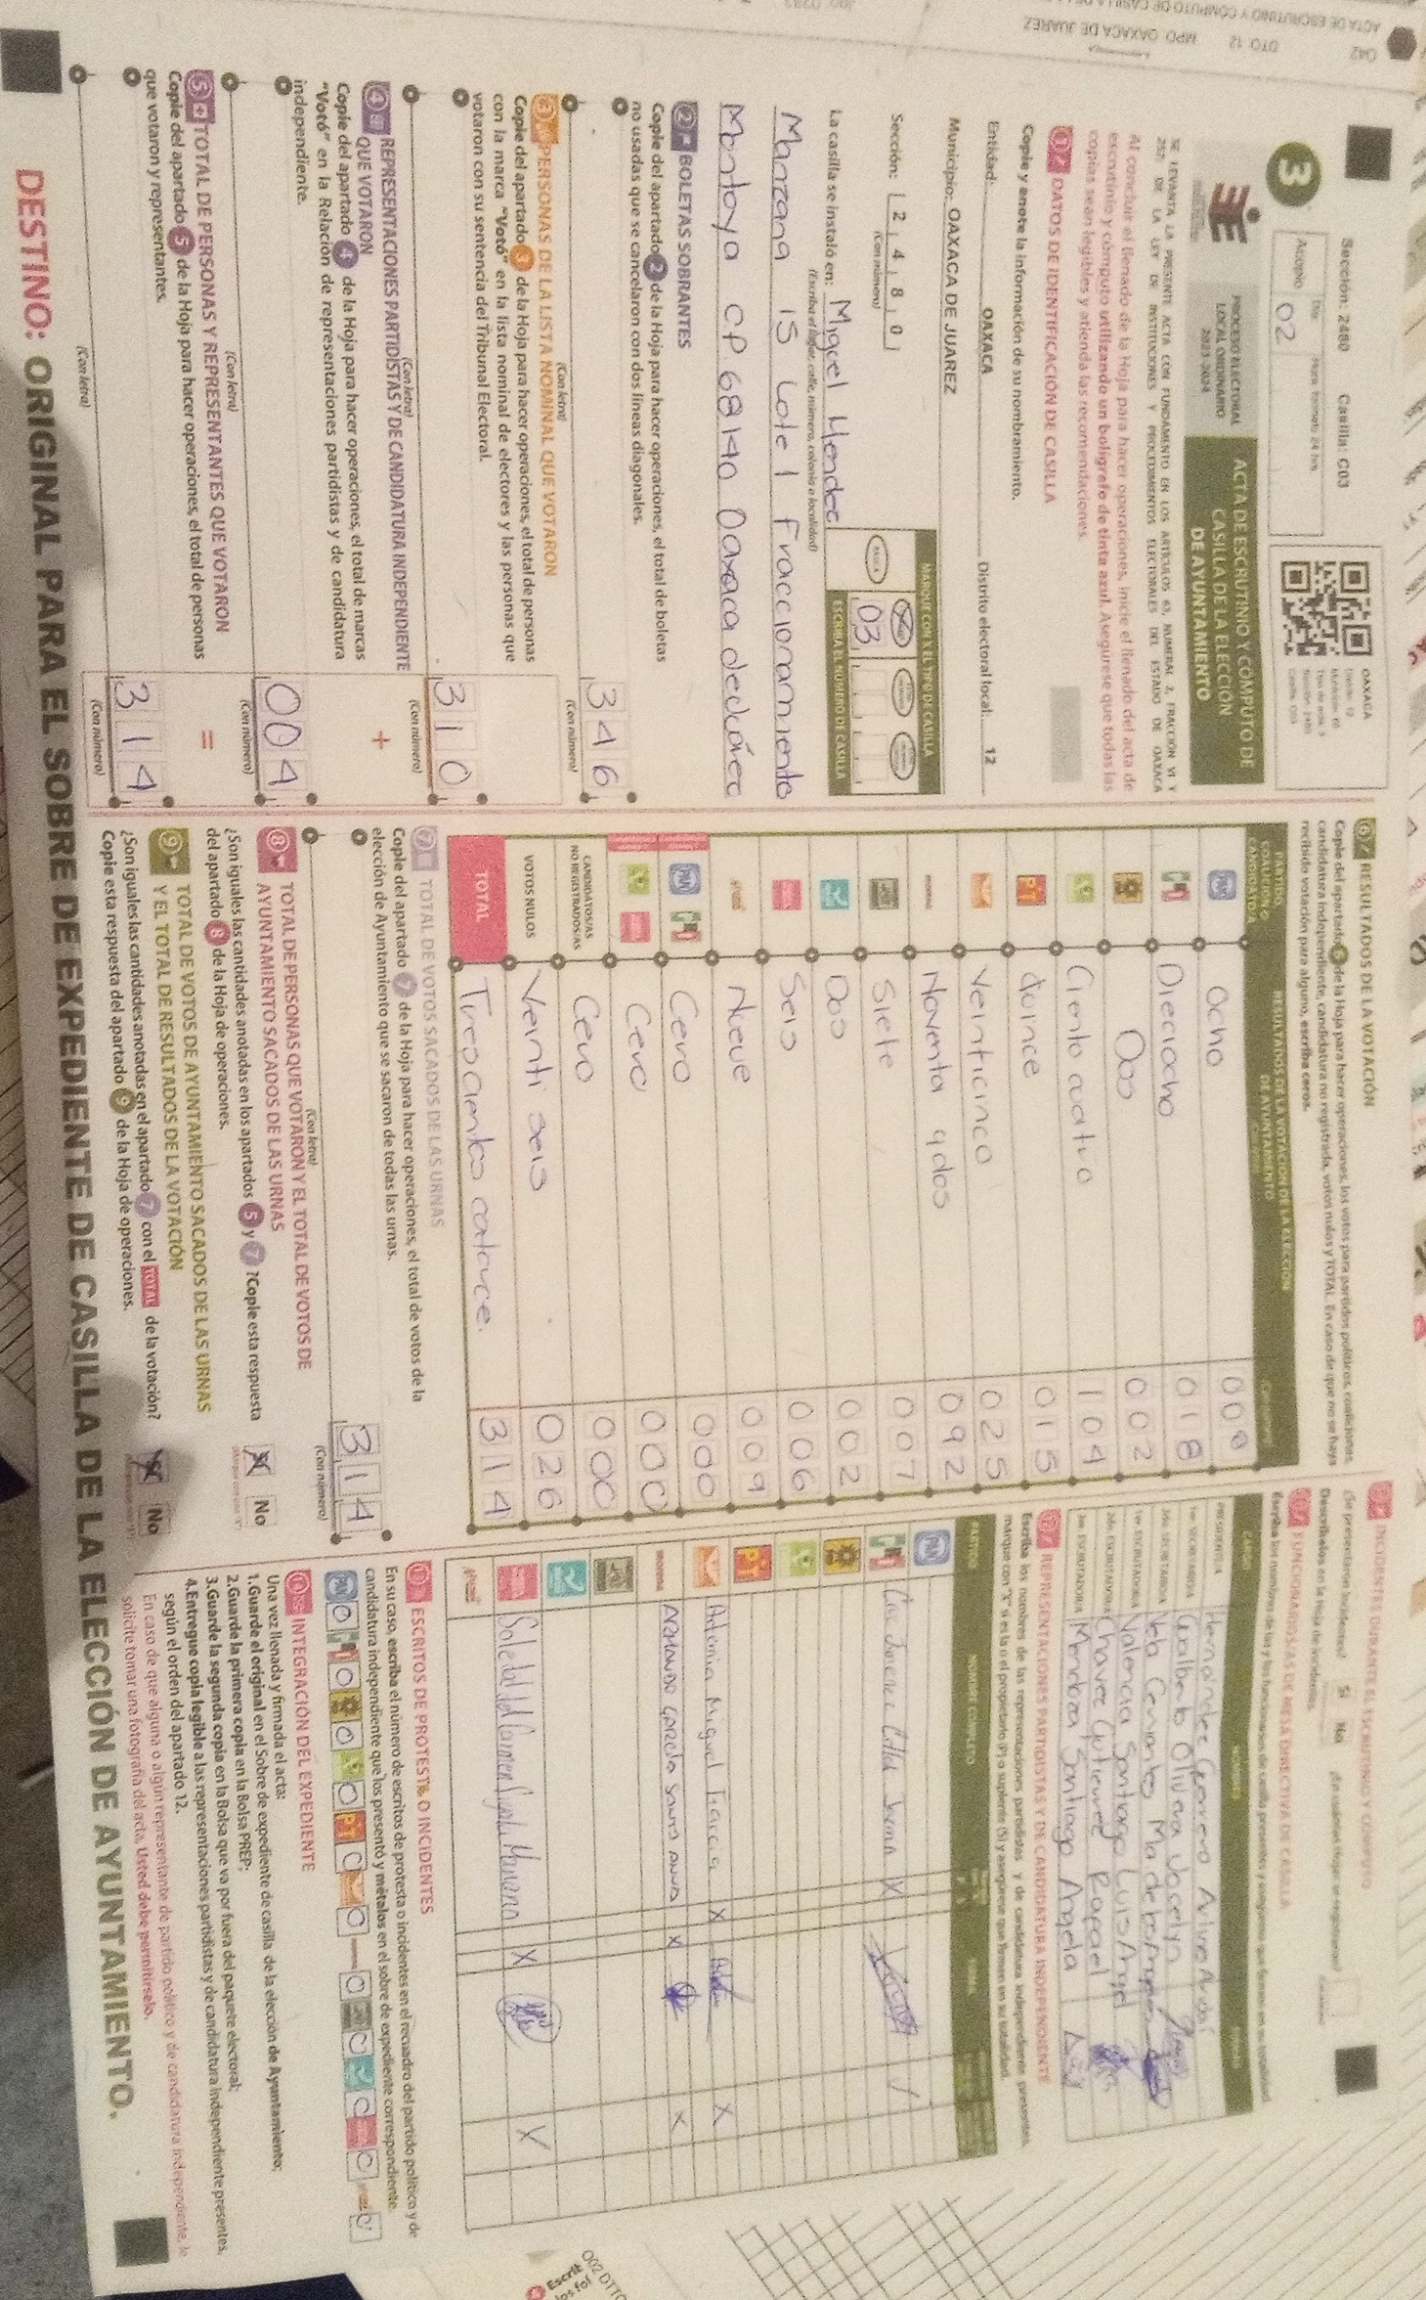 042
DTO. 12 MPO. OAXACA DE JUAREZ
Sección: 2480 Casilla: C03
3
Acopio
Día:
Hora: formato 24 hrs.
02
OAXACA
PROCESO ELECTORAL
LOCAL ORDINARIO
2023-2024
ACTA DE ESCRUTINIO Y CÓMPUTO DE
CASILLA DE LA ELECCIÓN
DE AYUNTAMIENTO
SE LEVANTA LA PRESENTE ACTA CON FUNDAMENTO EN LOS ARTÍCULOS 63, NUMERAL 2, FRACCIÓN VI Y
257, DE LA LEY DE INSTITUCIONES Y PROCEDIMIENTOS ELECTORALES DEL ESTADO DE OAXACA
Al concluir el llenado de la Hoja para hacer operaciones, inicie el llenado del acta de
escrutinio y cómputo utilizando un bolígrafo de tinta azul. Asegúrese que todas las
copias sean legibles y atienda las recomendaciones.
1 DATOS DE IDENTIFICACIÓN DE CASILLA
Copie y anote la información de su nombramiento.
Entidad: OAXACA Distrito electoral local: 12
Municipio: OAXACA DE JUAREZ
Sección: 2 4 8 0
(Con número)
MARQUE CON X EL TIPO DE CASILLA
03
ESCRIBA EL NÚMERO DE CASILLA
La casilla se instaló en: Miguel Hendez
(Escriba el lugar, calle, número, colonia o localidad)
Manzana 15 Lote 1 Fraccionamiento
Montoya CP 68140 Oaxaca de
2 BOLETAS SOBRANTES
Copie del apartado 2 de la Hoja para hacer operaciones, el total de boletas
no usadas que se cancelaron con dos líneas diagonales.
346
(Con letra) (Con número)
3 PERSONAS DE LA LISTA NOMINAL QUE VOTARON
Copie del apartado 3 de la Hoja para hacer operaciones, el total de personas
con la marca "Votó" en la lista nominal de electores y las personas que
votaron con su sentencia del Tribunal Electoral.
310
(Con letra) (Con número)
4 REPRESENTACIONES PARTIDISTAS Y DE CANDIDATURA INDEPENDIENTE
QUE VOTARON
+
Copie del apartado 4 de la Hoja para hacer operaciones, el total de marcas
"Votó" en la Relación de representaciones partidistas y de candidatura
independiente.
004
(Con letra) (Con número)
5 TOTAL DE PERSONAS Y REPRESENTANTES QUE VOTARON
=
Copie del apartado 5 de la Hoja para hacer operaciones, el total de personas
que votaron y representantes.
314
(Con letra) (Con número)
6 RESULTADOS DE LA VOTACIÓN
Copie del apartado 6 de la Hoja para hacer operaciones, los votos para partidos políticos, coaliciones,
candidatura independiente, candidatura no registrada, votos nulos y TOTAL. En caso de que no se haya
recibido votación para alguno, escriba ceros.
PARTIDO, COALICIÓN O CANDIDATO/A
RESULTADOS DE LA VOTACIÓN DE LA ELECCIÓN
DE AYUNTAMIENTO
PAN Ocho 008
Dieciocho 018
Dos 002
Ciento cuatro 104
PT Quince 015
Veinticinco 025
morena Noventa y dos 092
Siete 007
Dos 002
Seis 006
Nueve 009
PAN Cero 000
Cero 000
CANDIDATOS/AS
NO REGISTRADOS/AS Cero 000
VOTOS NULOS Veinti seis 026
TOTAL Trescientos catorce. 314
7 TOTAL DE VOTOS SACADOS DE LAS URNAS
Copie del apartado 7 de la Hoja para hacer operaciones, el total de votos de la
elección de Ayuntamiento que se sacaron de todas las urnas.
314
(Con letra) (Con número)
8 TOTAL DE PERSONAS QUE VOTARON Y EL TOTAL DE VOTOS DE
AYUNTAMIENTO SACADOS DE LAS URNAS
¿Son iguales las cantidades anotadas en los apartados 5 y 7 ? Copie esta respuesta
del apartado 8 de la Hoja de operaciones.
No
9 TOTAL DE VOTOS DE AYUNTAMIENTO SACADOS DE LAS URNAS
Y EL TOTAL DE RESULTADOS DE LA VOTACIÓN
¿Son iguales las cantidades anotadas en el apartado 7 con el TOTAL de la votación?
Copie esta respuesta del apartado 9 de la Hoja de operaciones.
No
INCIDENTES DURANTE EL ESCRUTINIO Y CÓMPUTO
¿Se presentaron incidentes? Sí No
Descríbalos en la Hoja de incidentes.
FUNCIONARIOS/AS DE MESA DIRECTIVA DE CASILLA
CARGO NOMBRES
PRESIDENTE/A Hernández Guerrero Arline
1er. SECRETARIO/A Gualberto Olivera Jocelyn
2do. SECRETARIO/A
1er. ESCRUTADOR/A Valencia Santiago Luis Angel
2do. ESCRUTADOR/A Chavez Gutierrez Rafael
3er. ESCRUTADOR/A Mendoza Santiago Angela
REPRESENTACIONES PARTIDISTAS Y DE CANDIDATURA INDEPENDIENTE
Escriba los nombres de las representaciones partidistas y de candidatura independiente presentes,
marque con "X" si es la o el propietario (P) o suplente (S) y asegúrese que firmen en su totalidad.
PARTIDO NOMBRE COMPLETO
PAN
PT
Antonia Miguel Garcia X X
morena ARMANDO GARCIA SANTA ANNA X X
Soledad del Carmen X X
ESCRITOS DE PROTESTA O INCIDENTES
En su caso, escriba el número de escritos de protesta o incidentes en el recuadro del partido político y de
candidatura independiente que los presentó y métalos en el sobre de expediente correspondiente.
INTEGRACIÓN DEL EXPEDIENTE
Una vez llenada y firmada el acta:
1.Guarde el original en el Sobre de expediente de casilla de la elección de Ayuntamiento;
2.Guarde la primera copia en la Bolsa PREP;
3.Guarde la segunda copia en la Bolsa que va por fuera del paquete electoral;
4.Entregue copia legible a las representaciones partidistas y de candidatura independiente presentes,
según el orden del apartado 12.
En caso de que alguna o algún representante de partido político y de candidatura independiente, le
solicite tomar una fotografía del acta. Usted debe permitírselo.
DESTINO: ORIGINAL PARA EL SOBRE DE EXPEDIENTE DE CASILLA DE LA ELECCIÓN DE AYUNTAMIENTO.